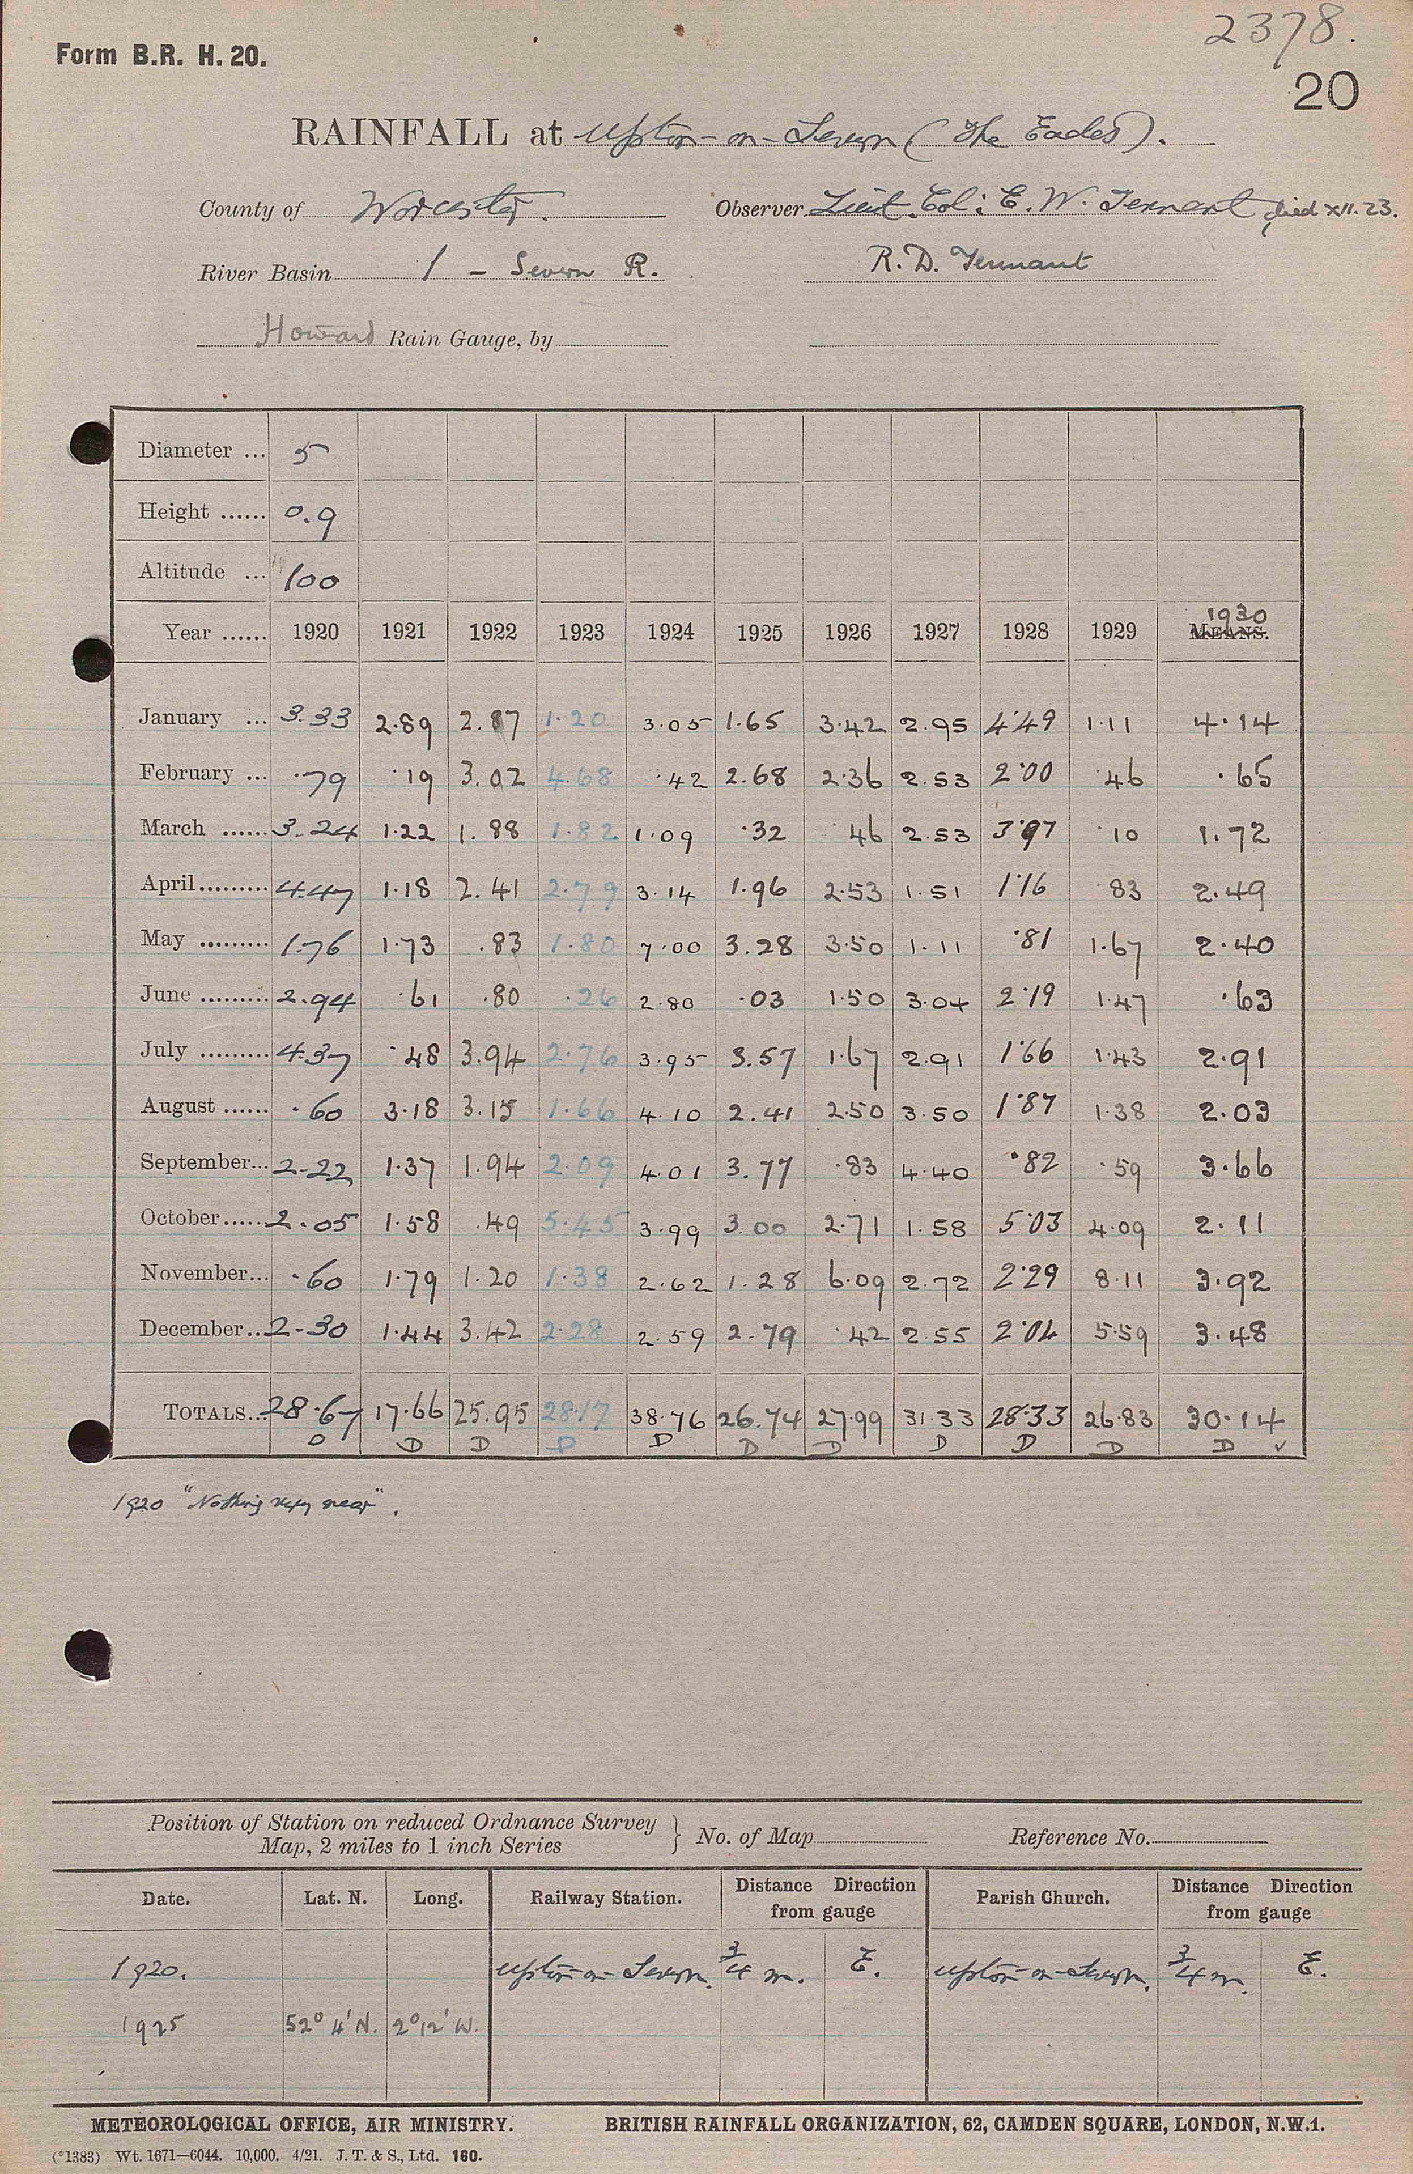 2378.
Form B.R. H. 20.
20
RAINFALL at Upton-on-Severn (The Eades).
County of Worcester. Observer Lieut. Col: E. W. Tennant died XII.23.
River Basin 1 - Severn R. R. D. Tennant
Howard Rain Gauge, by
Diameter ... 5
Height ...... 0.9
Altitude ... 100
1930
Year ...... 1920 1921 1922 1923 1924 1925 1926 1927 1928 1929 MEANS.
January ... 3.33 2.89 2.87 1.20 3.05 1.65 3.42 2.95 4.49 1.11 4.14
February ... .79 .19 3.02 4.68 .42 2.68 2.36 2.53 2.00 .46 .65
March ...... 3.24 1.22 1.88 1.82 1.09 .32 .46 2.53 3.97 .10 1.72
April ......... 4.47 1.18 2.41 2.79 3.14 1.96 2.53 1.51 1.16 .83 2.49
May ......... 1.76 1.73 .83 1.80 7.00 3.28 3.50 1.11 .81 1.67 2.40
June ......... 2.94 .61 .80 .26 2.80 .03 1.50 3.04 2.19 1.47 .63
July ......... 4.37 .48 3.94 2.76 3.95 3.57 1.67 2.91 1.66 1.43 2.91
August ...... .60 3.18 3.15 1.66 4.10 2.41 2.50 3.50 1.87 1.38 2.03
September... 2.22 1.37 1.94 2.09 4.01 3.77 .83 4.40 .82 .59 3.66
October...... 2.05 1.58 .49 5.45 3.99 3.00 2.71 1.58 5.03 4.09 2.11
November... .60 1.79 1.20 1.38 2.62 1.28 6.09 2.72 2.29 8.11 3.92
December... 2.30 1.44 3.42 2.28 2.59 2.79 .42 2.55 2.04 5.59 3.48
TOTALS... 28.67 17.66 25.95 28.17 38.76 26.74 27.99 31.33 28.33 26.83 30.14
D D D D D D D D D D D ✓
1920 "Nothing very near".
Position of Station on reduced Ordnance Survey
Map, 2 miles to 1 inch Series } No. of Map Reference No.
Date. Lat. N. Long. Railway Station. Distance Direction from gauge Parish Church. Distance Direction from gauge
1920. Upton-on-Severn. 3/4 m. E. Upton-on-Severn. 3/4 m. E.
1925 52° 4' N. 2° 12' W.
METEOROLOGICAL OFFICE, AIR MINISTRY. BRITISH RAINFALL ORGANIZATION, 62, CAMDEN SQUARE, LONDON, N.W.1.
(*1383) Wt. 1671—6044. 10,000. 4/21. J. T. & S., Ltd. 160.